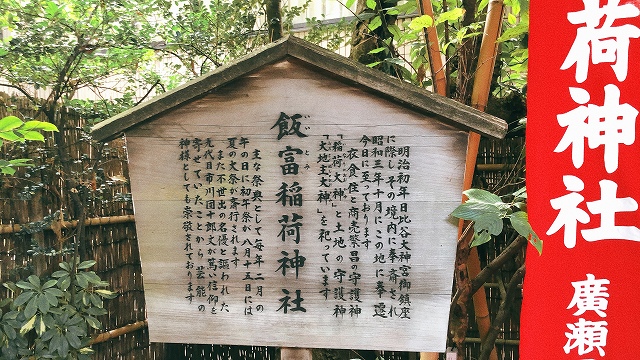 飯富稲荷神社
いいとみ
明治初年日比谷大神宮御鎮座
に際し、その境内に奉斎され
昭和三年十月にこの地に奉遷
今日に至っております
衣食住と商売繁昌の守護神
「稲荷大神」と土地の守護神
「大地主大神」を祀っています
主な祭典として毎年二月の
午の日に初午祭が八月十五日には
夏の大祭が斎行されます
また不世出の名優と謳われた
九代目市川団十郎丈が篤い信仰を
寄せていたことから芸能の
神様としても崇敬されております
荷神社
廣瀬